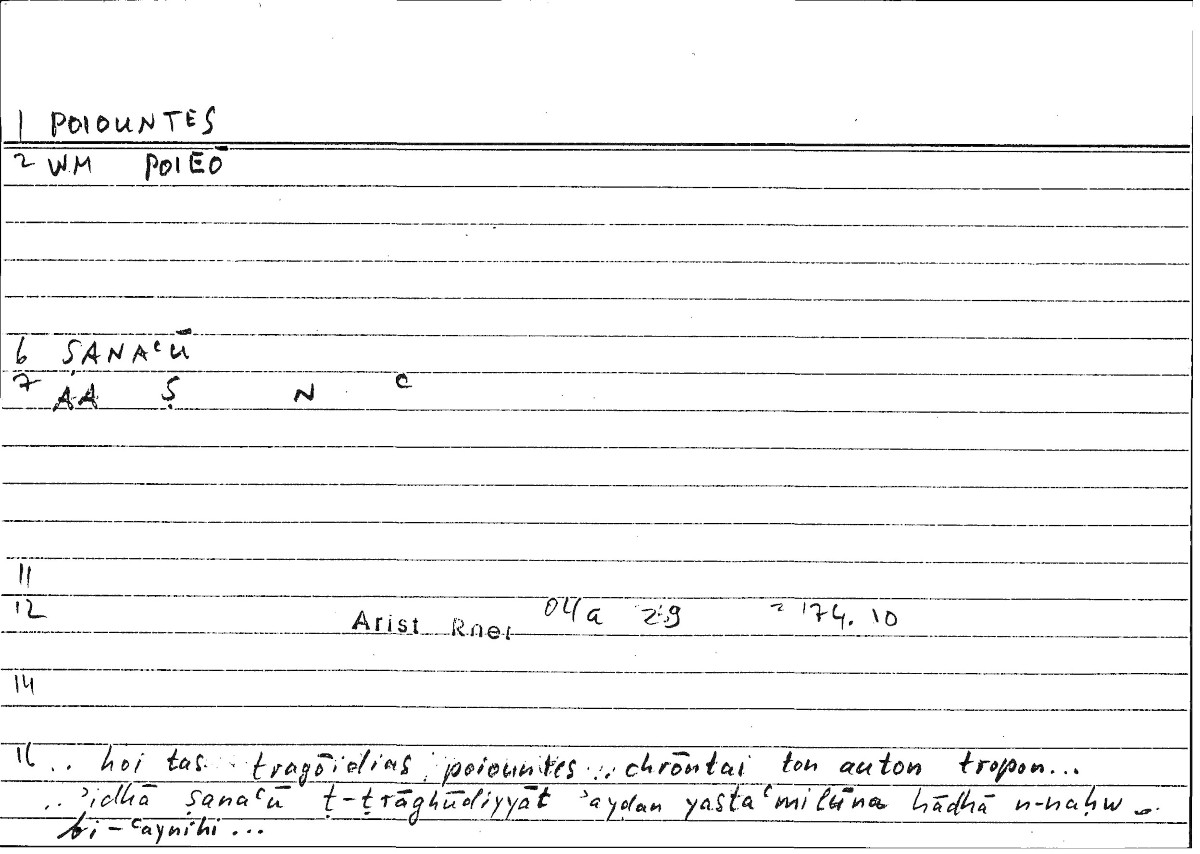 1 POIOUNTES
2 WM POIEŌ
6 ṢANAʿŪ
7 AA Ṣ N ʿ
11
12 Arist Rhet 04a 29 = 174. 10
14
16 .. hoi tas .. tragōidias poiountes .. chrōntai ton auton tropon...
.. ʾidhā ṣanaʿū ṭ-ṭrāghūdiyyāt ʾayḍan yastaʿmilūna hādhā n-naḥw
bi-ʿaynihi ...